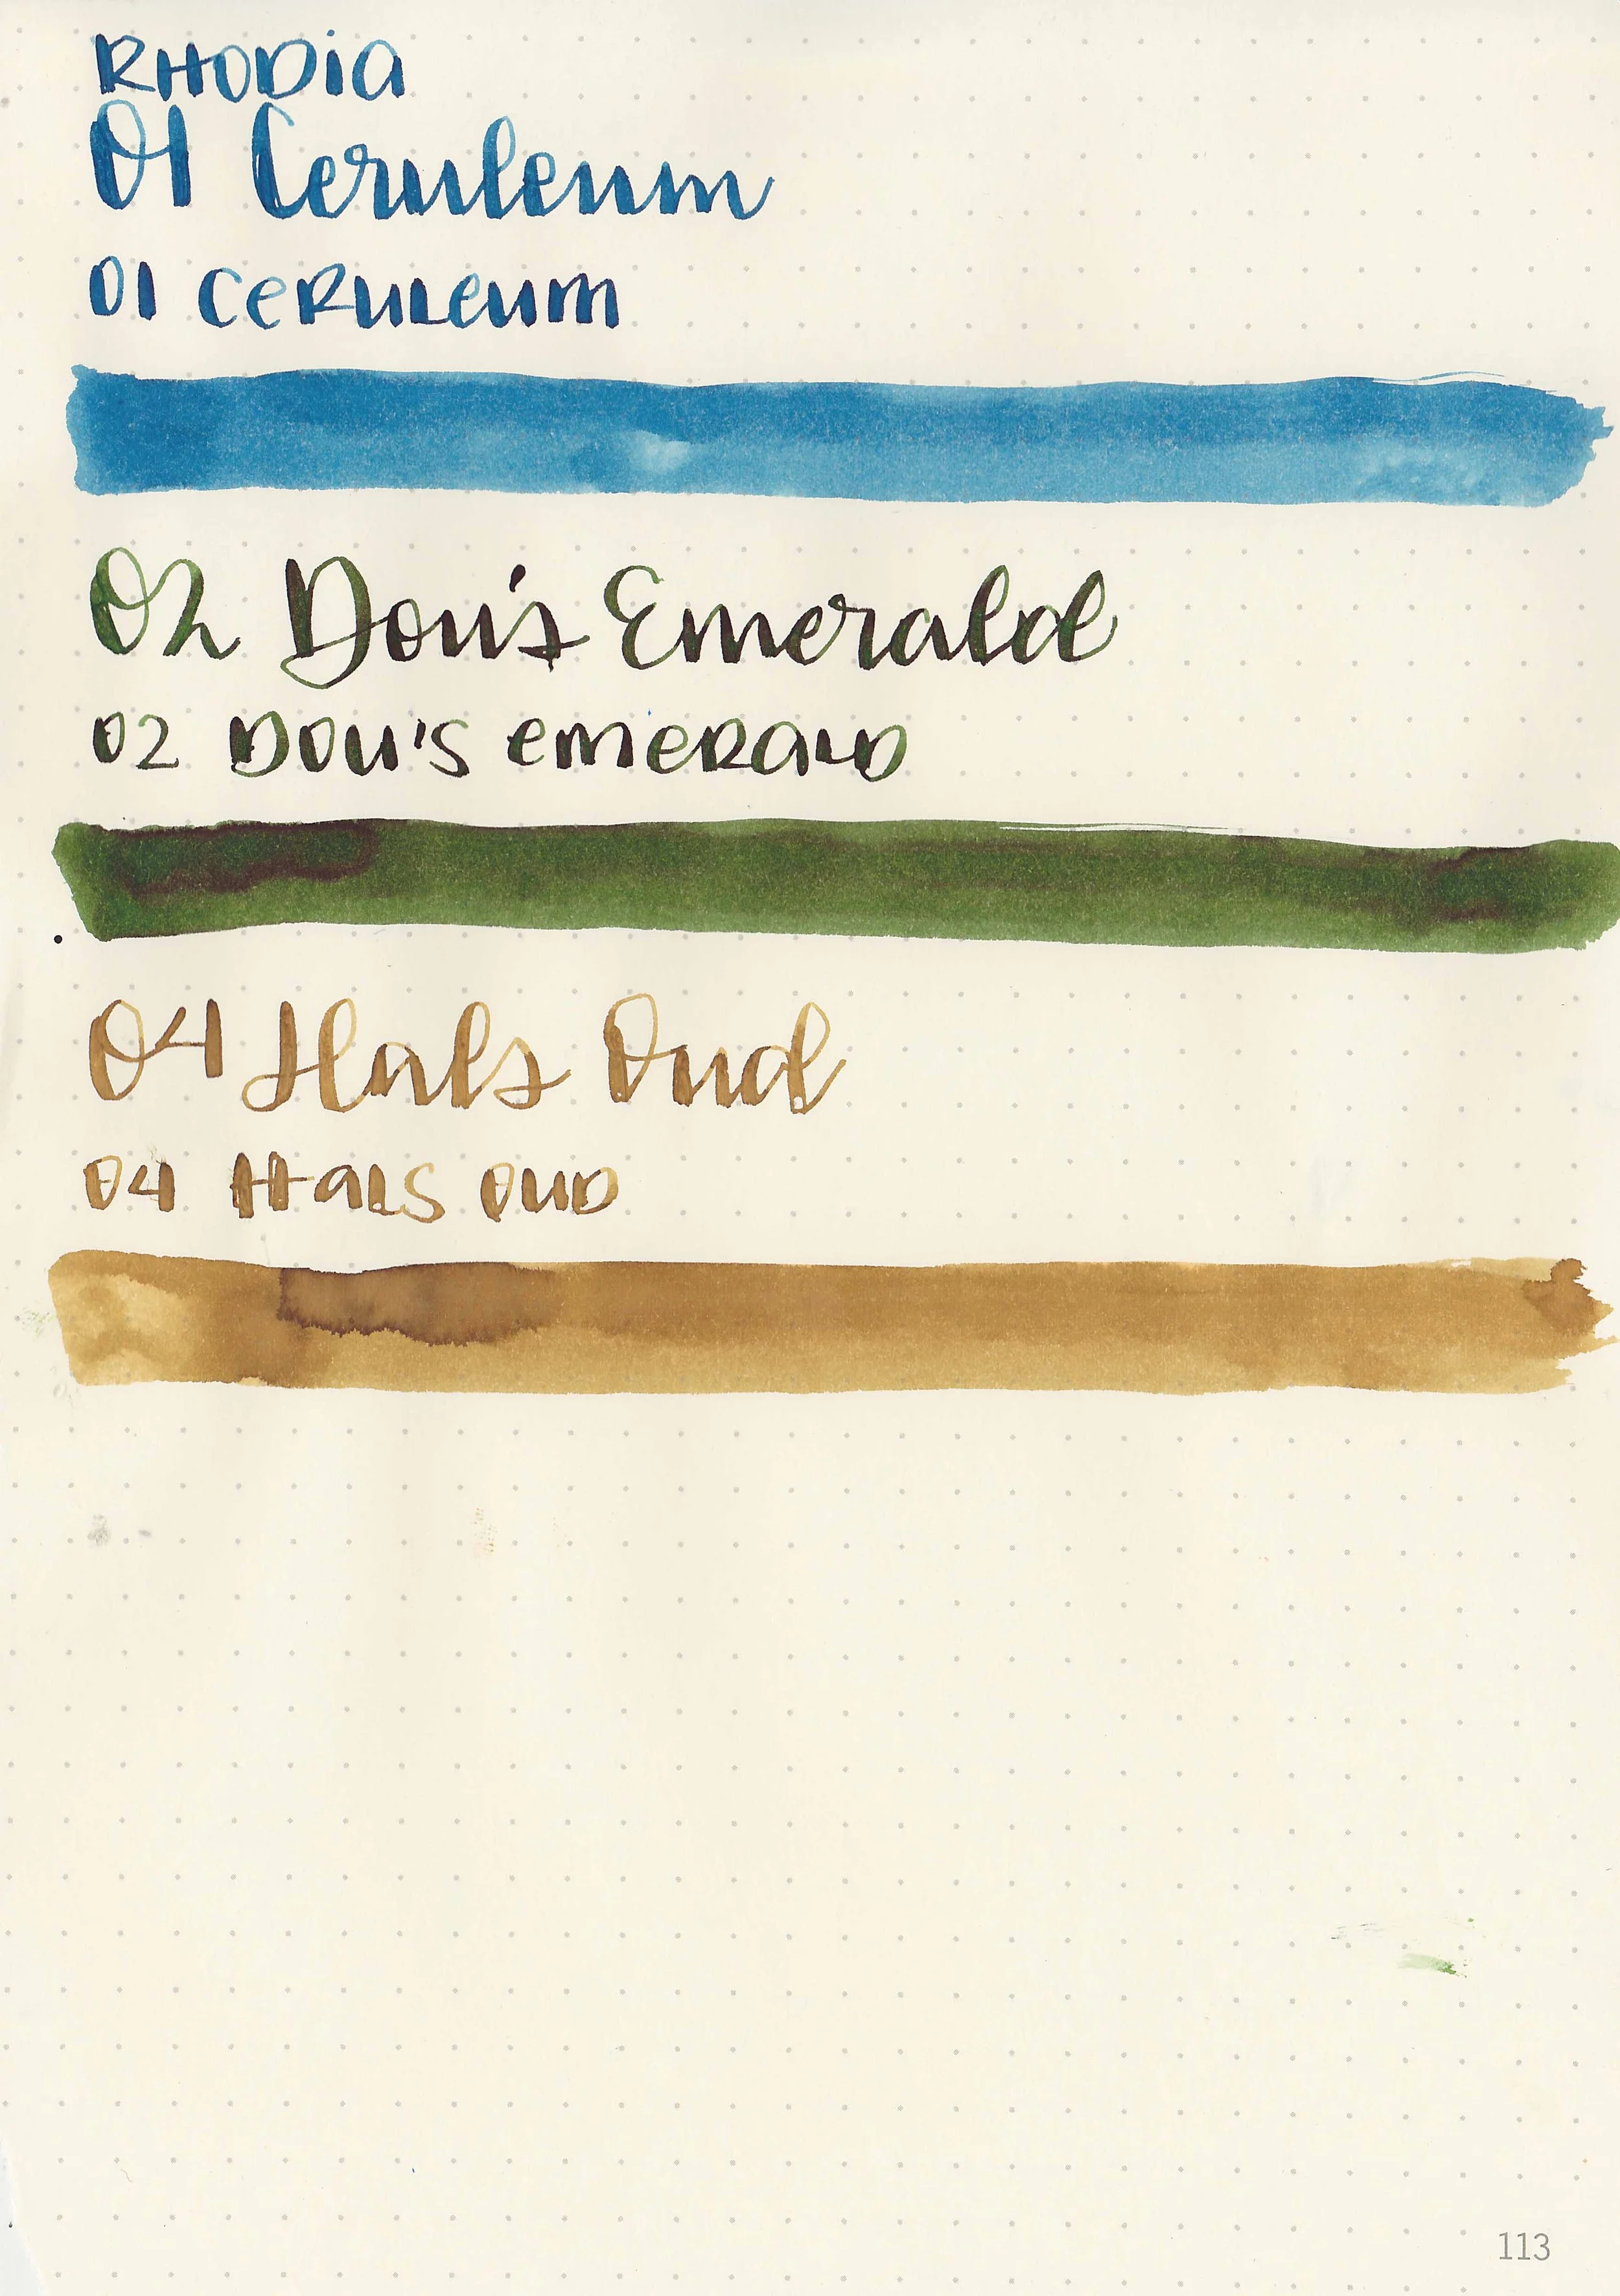 RHODIA
01 Ceruleum
01 CERULEUM
02 Dou's Emerald
02 DOU'S EMERALD
04 Hals Oud
04 HALS OUD
113